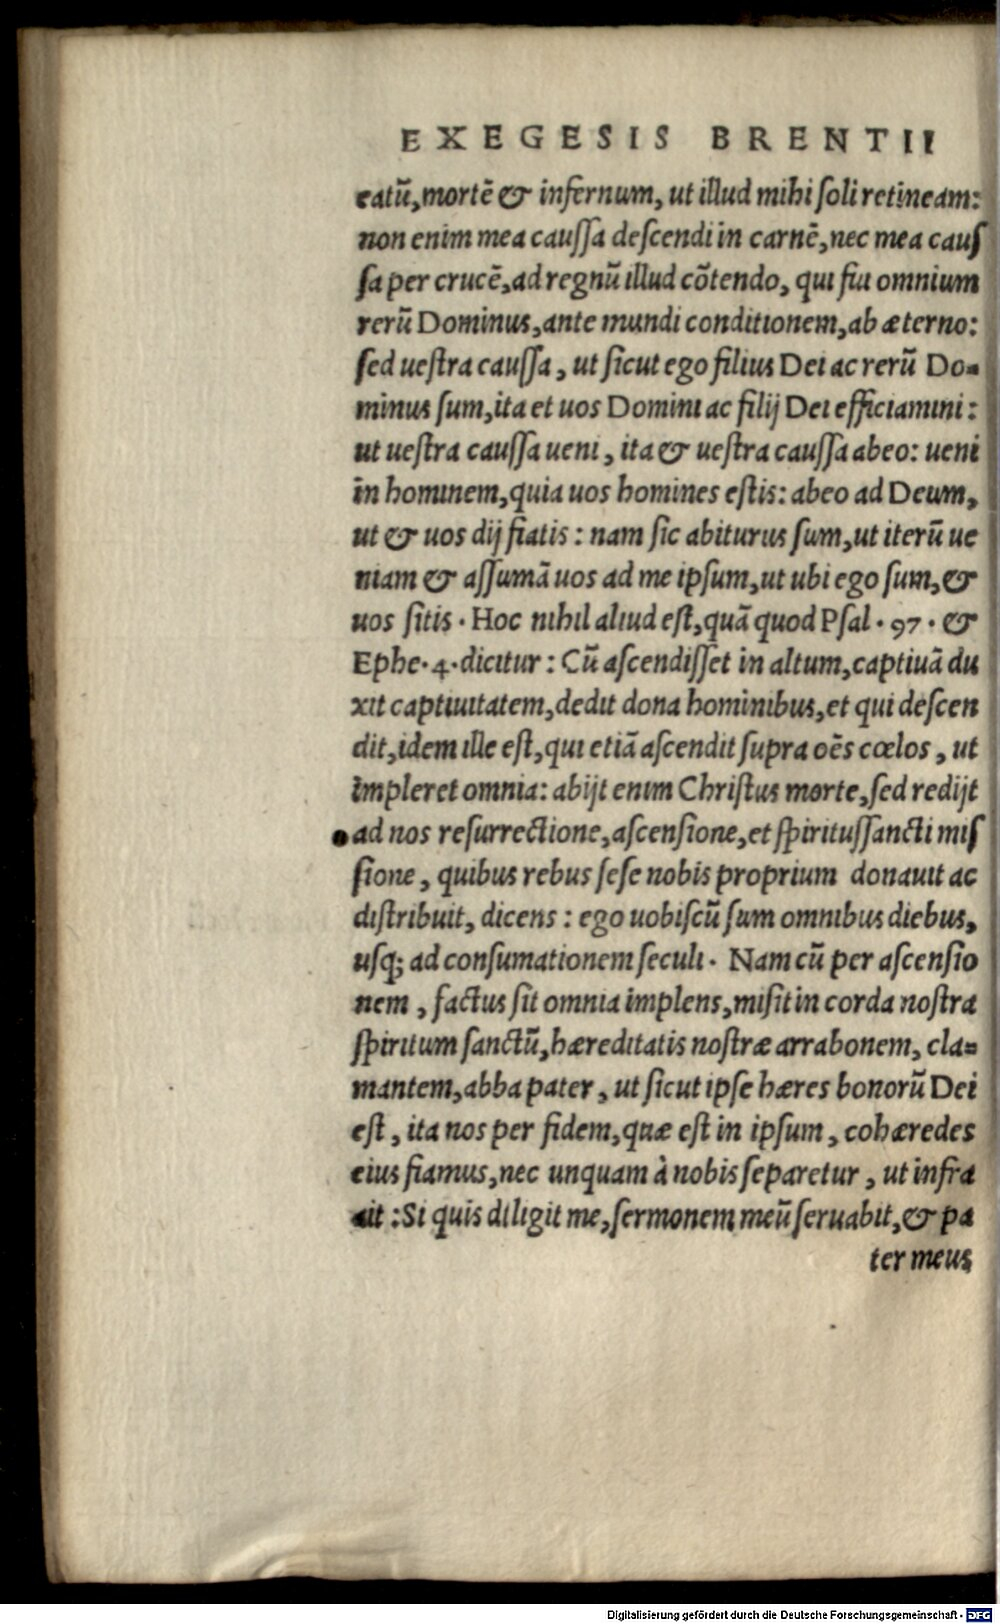 EXEGESIS BRENTII
catū,mortē & infernum, ut illud mihi ſoli retineam:
non enim mea cauſſa deſcendi in carnē,nec mea cauſ
ſa per crucē,ad regnū illud cōtendo, qui fui omnium
rerū Dominus,ante mundi conditionem,ab æterno:
ſed ueſtra cauſſa, ut ſicut ego filius Dei ac rerū Do=
minus ſum,ita et uos Domini ac filij Dei efficiamini:
ut ueſtra cauſſa ueni, ita & ueſtra cauſſa abeo: ueni
in hominem,quia uos homines eſtis: abeo ad Deum,
ut & uos dij fiatis: nam ſic abiturus ſum,ut iterū ue
niam & aſſumā uos ad me ipſum,ut ubi ego ſum,&
uos ſitis. Hoc nihil aliud eſt,quā quod Pſal. 97. &
Ephe.4.dicitur: Cū aſcendiſſet in altum,captiuā du
xit captiuitatem,dedit dona hominibus,et qui deſcen
dit,idem ille eſt,qui etiā aſcendit ſupra oēs cœlos, ut
impleret omnia: abijt enim Chriſtus morte,ſed redijt
ad nos reſurrectione,aſcenſione,et ſpirituſſancti miſ
ſione, quibus rebus ſeſe nobis proprium donauit ac
diſtribuit, dicens: ego uobiſcū ſum omnibus diebus,
uſq; ad conſumationem ſeculi. Nam cū per aſcenſio
nem, factus ſit omnia implens,miſit in corda noſtra
ſpiritum ſanctū,hæreditatis noſtræ arrabonem, cla=
mantem,abba pater, ut ſicut ipſe hæres bonorū Dei
eſt, ita nos per fidem,quæ eſt in ipſum, cohæredes
eius fiamus,nec unquam à nobis ſeparetur, ut infra
ait: Si quis diligit me,ſermonem meū ſeruabit,& pa
ter meus
Digitalisierung gefördert durch die Deutsche Forschungsgemeinschaft - DFG